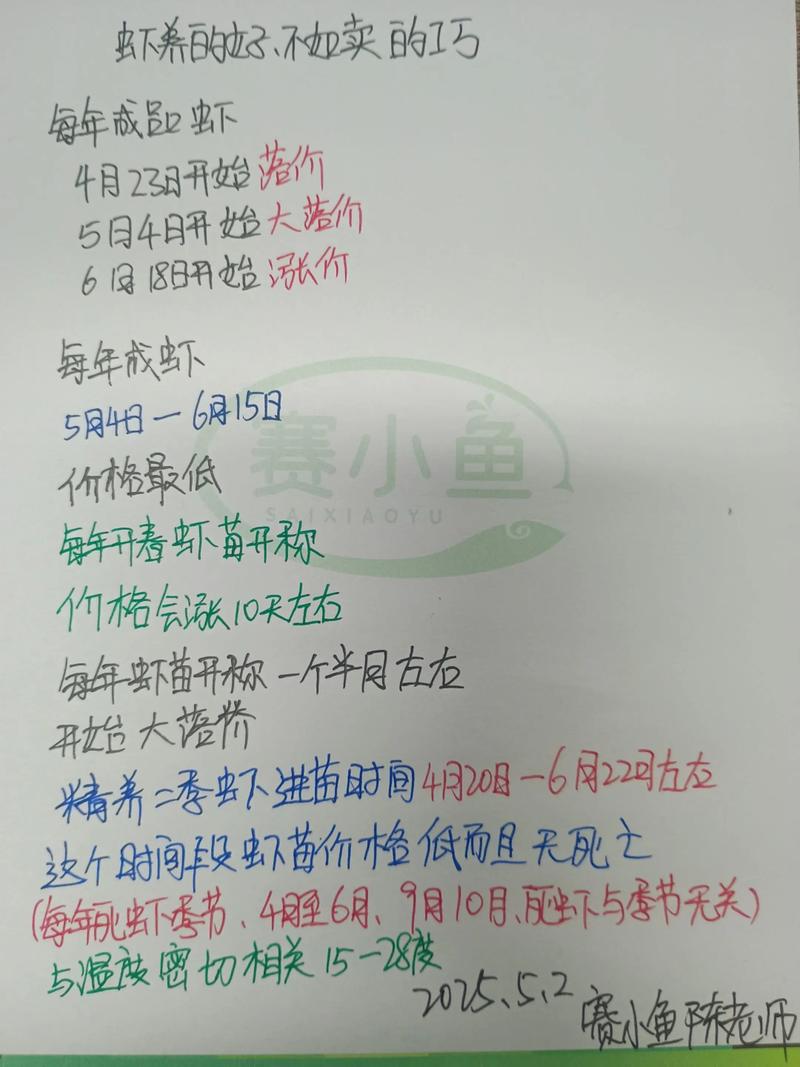 虾养的好、不如卖的巧
每年成品虾
4月23日开始落价
5月4日开始大落价
6月18日开始涨价
每年成虾
5月4日一6月15日
价格最低
赛小鱼
SAIXIAOYU
每年开春虾苗开称
价格会涨10天左右
每年虾苗开称一个半月左右
开始大落价
精养二季虾进苗时间4月20日一6月22日左右
这个时间段虾苗价格低而且无死亡
(每年死虾季节、4月至6月、9月10月、死虾与季节无关)
与温度密切相关15-28度
2025、5、2
赛小鱼陈老师